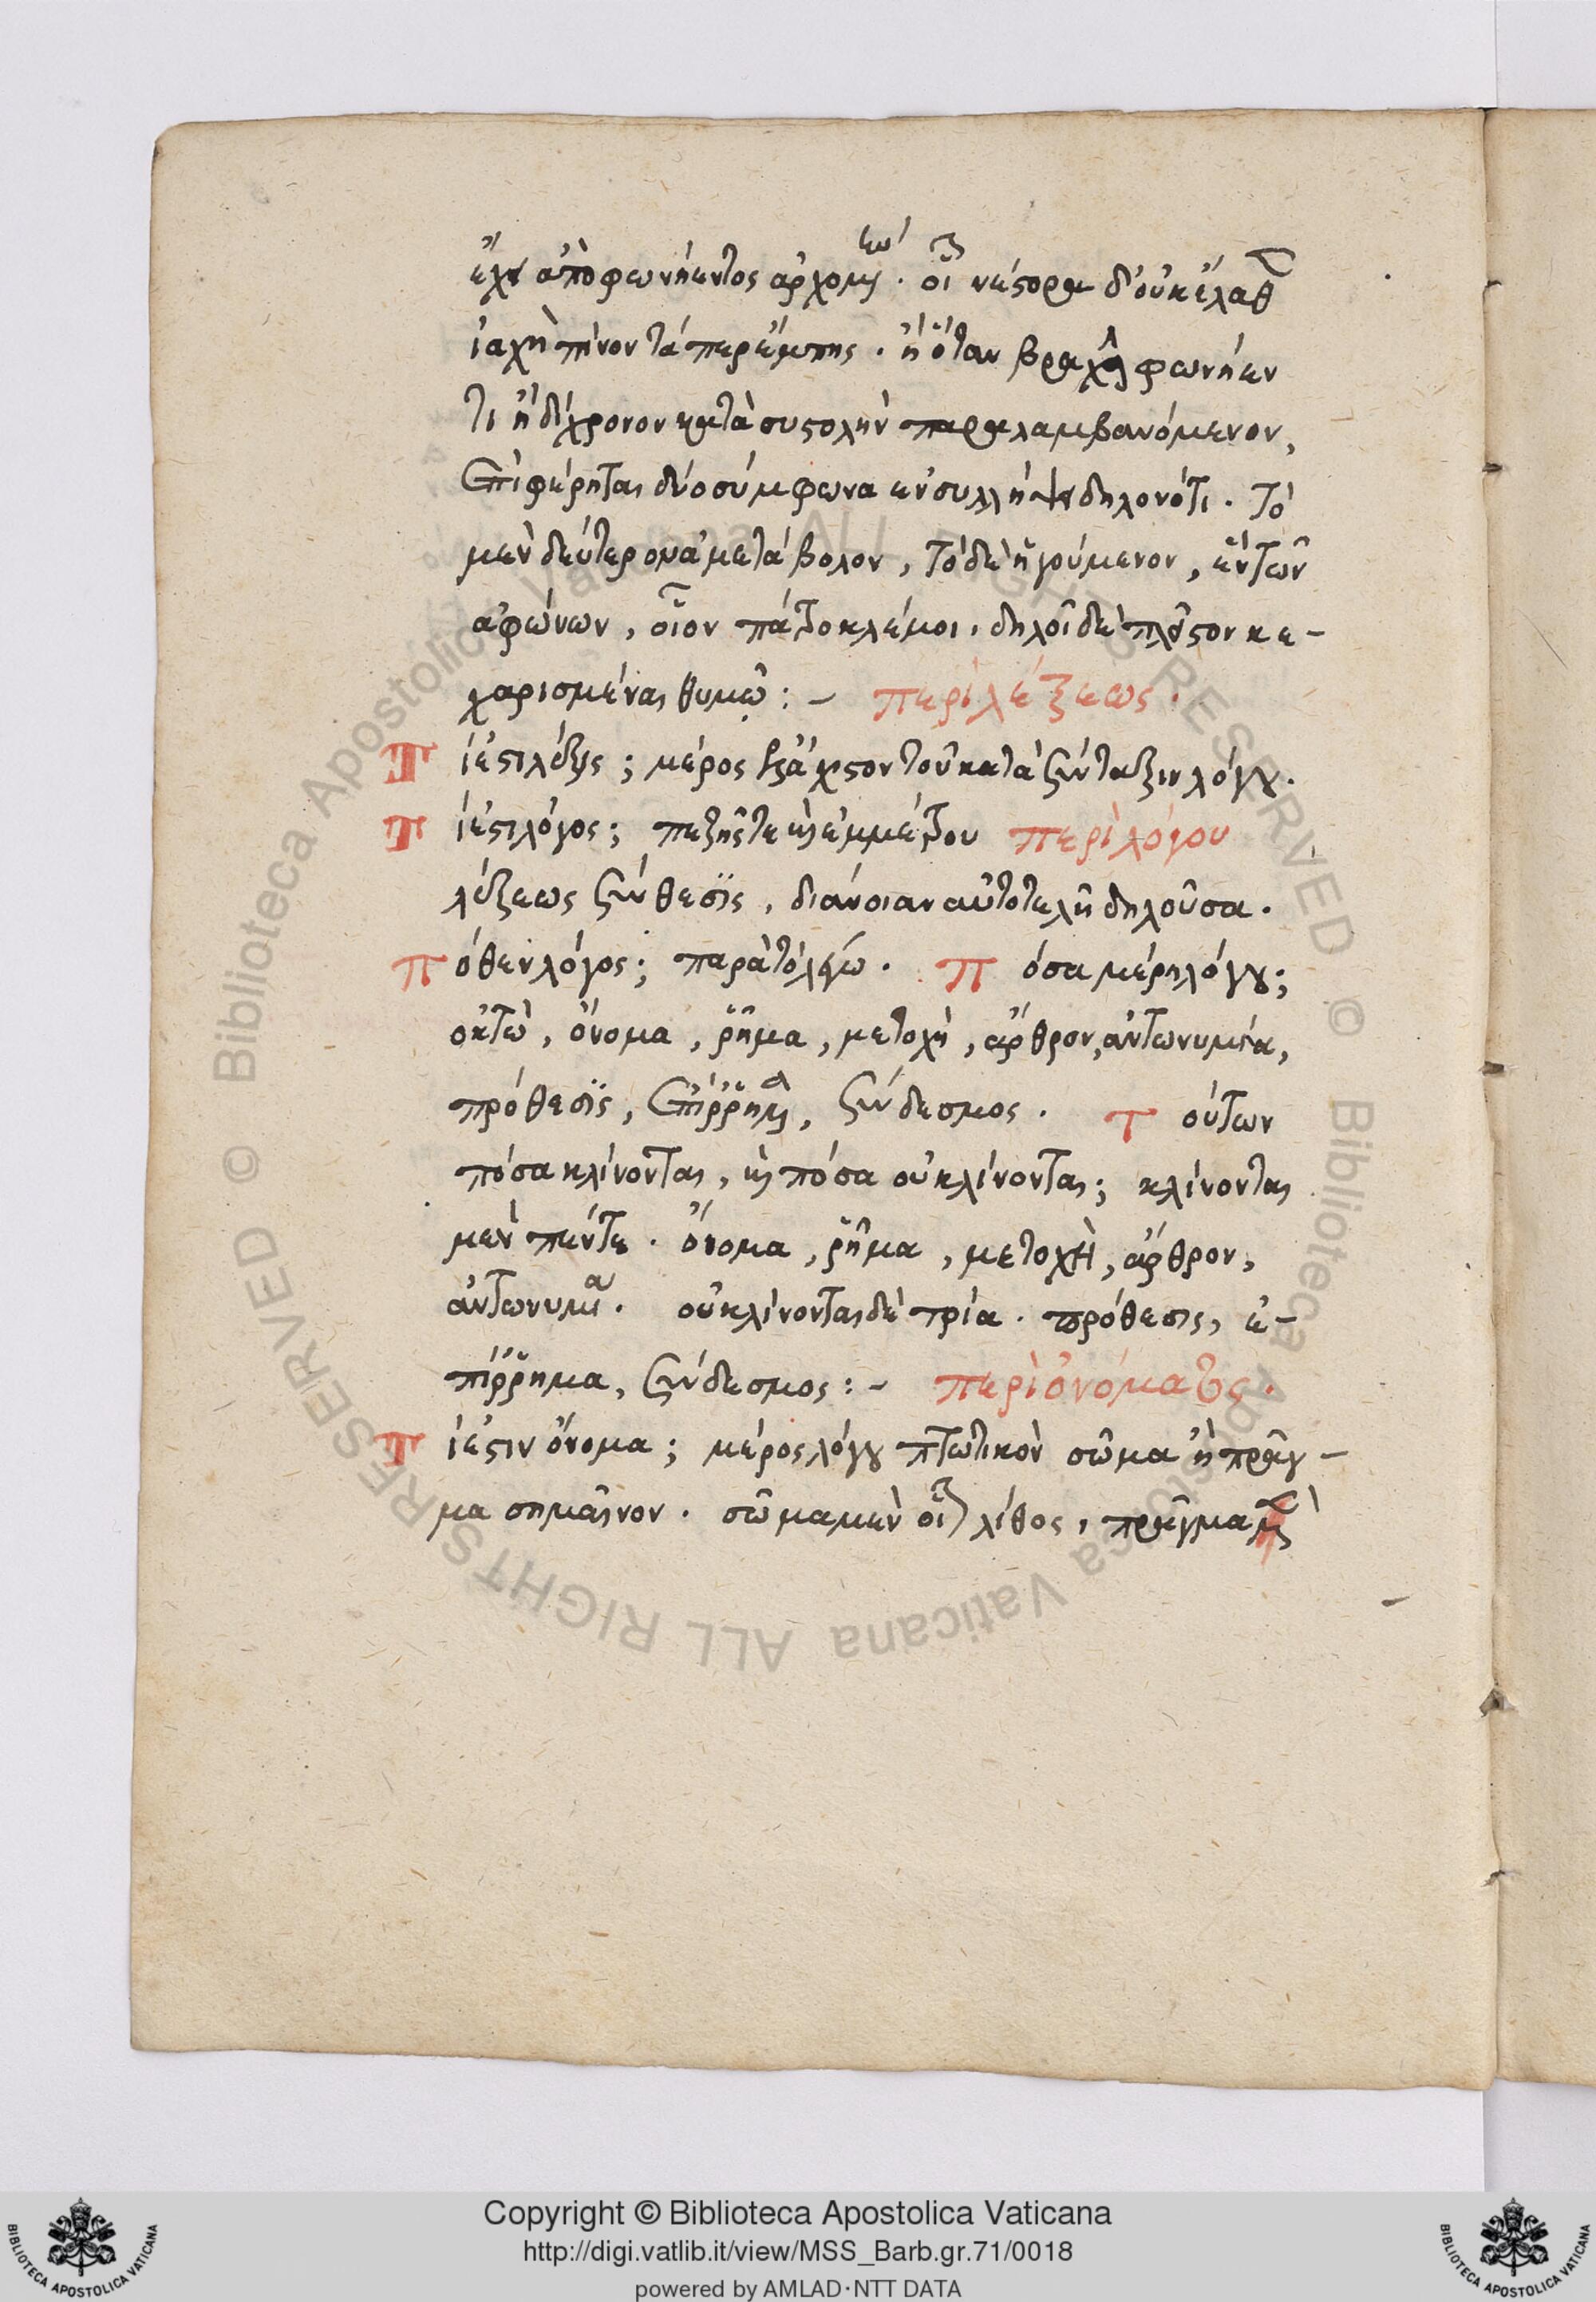 ἔχει ἀπὸ φωνήεντος ἀρχομένην· οἷον νέστορα δ' οὐκ ἔλαθεν
ἰαχὴ πίνοντά περ ἔμπης· ἢ ὅταν βραχεῖ φωνήεν
τι ἢ δίχρονον κατὰ συστολὴν παραλαμβανόμενον,
ἐπιφέρηται δύο σύμφωνα ἐν συλλήψει δηλονότι· τὸ
μὲν δεύτερον ἀμετάβολον, τὸ δὲ ἡγούμενον, ἓν τῶν
ἀφώνων, οἷον πάτροκλέ μοι, δηλοῖ δὲ πλεῖστον κε-
χαρισμέναι θυμῷ: - περὶ λέξεως.
Τί ἐστι λέξις; μέρος ἐλάχιστον τοῦ κατὰ σύνταξιν λόγου.
Τί ἐστι λόγος; πεζῆς τε καὶ ἐμμέτρου περὶ λόγου
λέξεως σύνθεσϊς, διάνοιαν αὐτοτελῆ δηλοῦσα.
Πόθεν λόγος; παρὰ τὸ λέγω. Πόσα μέρη λόγου;
ὀκτὼ, ὄνομα, ῥῆμα, μετοχὴ, ἄρθρον, ἀντωνυμία,
πρόθεσϊς, ἐπίρῥημα, σύνδεσμος. Τούτων
πόσα κλίνονται, καὶ πόσα οὐ κλίνονται; κλίνονται
μὲν πέντε· ὄνομα, ῥῆμα, μετοχὴ, ἄρθρον,
ἀντωνυμία. οὐ κλίνονται δὲ τρία· πρόθεσις, ἐ-
πίρῥημα, σύνδεσμος: - περὶ ὀνόματος.
Τί ἐστιν ὄνομα; μέρος λόγου πτωτικὸν σῶμα ἢ πρᾶγ-
μα σημαῖνον. σῶμα μὲν οἷον λίθος, πρᾶγμα δὲ
Copyright © Biblioteca Apostolica Vaticana
http://digi.vatlib.it/view/MSS_Barb.gr.71/0018
powered by AMLAD·NTT DATA